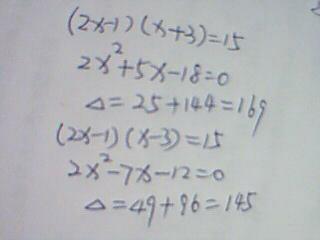 (2x-1)(x+3)=15
2x²+5x-18=0
Δ=25+144=169
(2x-1)(x-3)=15
2x²-7x-12=0
Δ=49+96=145